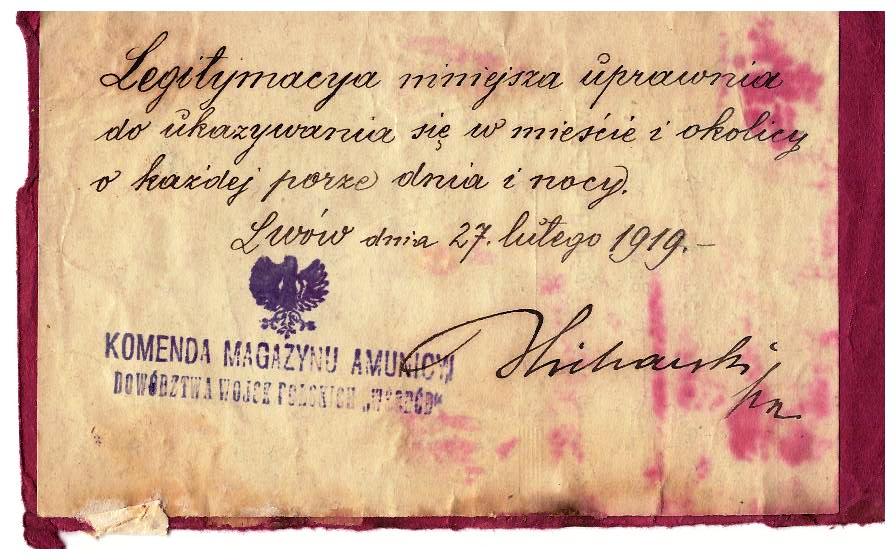 Legitymacya niniejsza uprawnia
do ukazywania się w mieście i okolicy
o każdej porze dnia i nocy.
Lwów dnia 27. lutego 1919.–
KOMENDA MAGAZYNU AMUNICYJ
DOWÓDZTWA WOJSK POLSKICH „WSCHÓD"